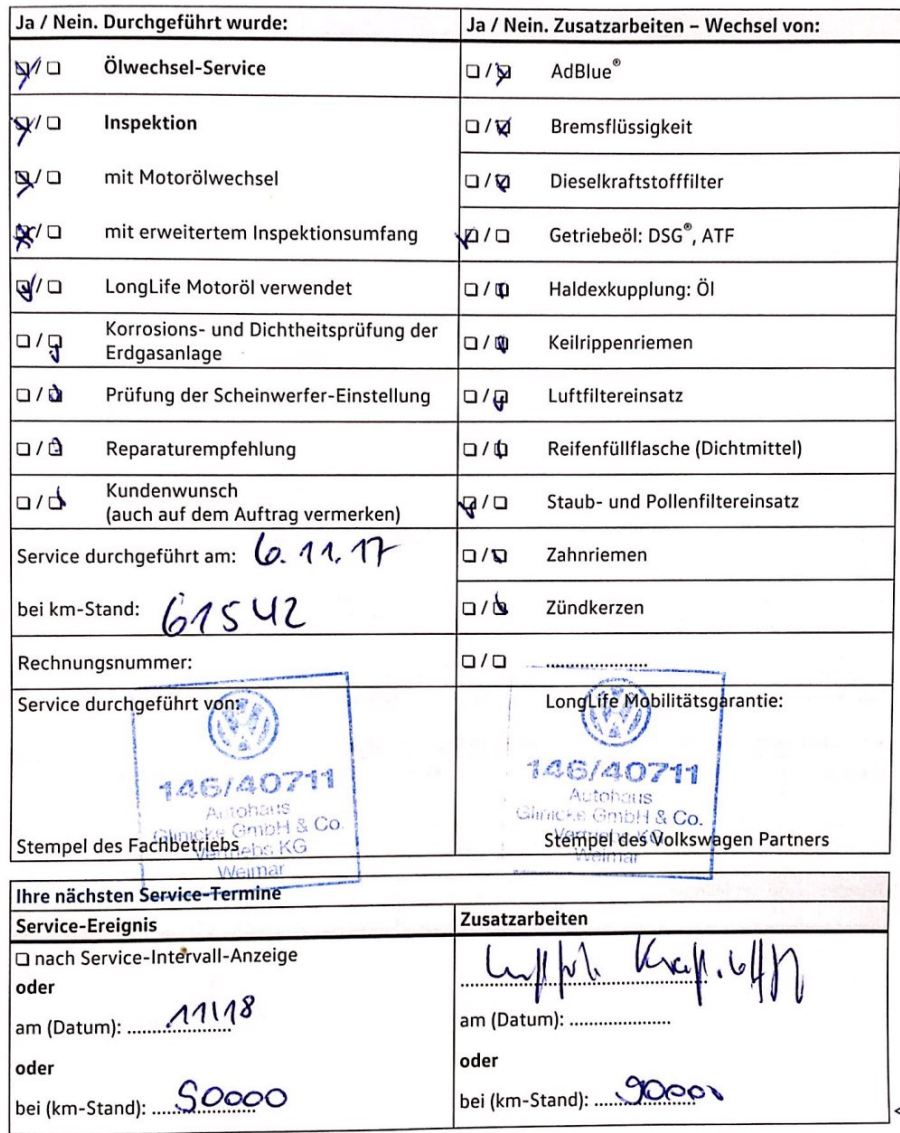 Ja / Nein. Durchgeführt wurde:
Ölwechsel-Service
Inspektion
mit Motorölwechsel
mit erweitertem Inspektionsumfang
LongLife Motoröl verwendet
Korrosions- und Dichtheitsprüfung der
Erdgasanlage
Prüfung der Scheinwerfer-Einstellung
Reparaturempfehlung
Kundenwunsch
(auch auf dem Auftrag vermerken)
Service durchgeführt am: 6.11.17
bei km-Stand: 61542
Rechnungsnummer:
Service durchgeführt von:
146/40711
Autohaus
Glinicke GmbH & Co.
Vertriebs KG
Weimar
Stempel des Fachbetriebs
Ja / Nein. Zusatzarbeiten – Wechsel von:
AdBlue®
Bremsflüssigkeit
Dieselkraftstofffilter
Getriebeöl: DSG®, ATF
Haldexkupplung: Öl
Keilrippenriemen
Luftfiltereinsatz
Reifenfüllflasche (Dichtmittel)
Staub- und Pollenfiltereinsatz
Zahnriemen
Zündkerzen
....................
LongLife Mobilitätsgarantie:
146/40711
Autohaus
Glinicke GmbH & Co.
Vertriebs KG
Weimar
Stempel des Volkswagen Partners
Ihre nächsten Service-Termine
Service-Ereignis
nach Service-Intervall-Anzeige
oder
am (Datum): 11/18
oder
bei (km-Stand): 90000
Zusatzarbeiten
am (Datum): ....................
oder
bei (km-Stand): 90000